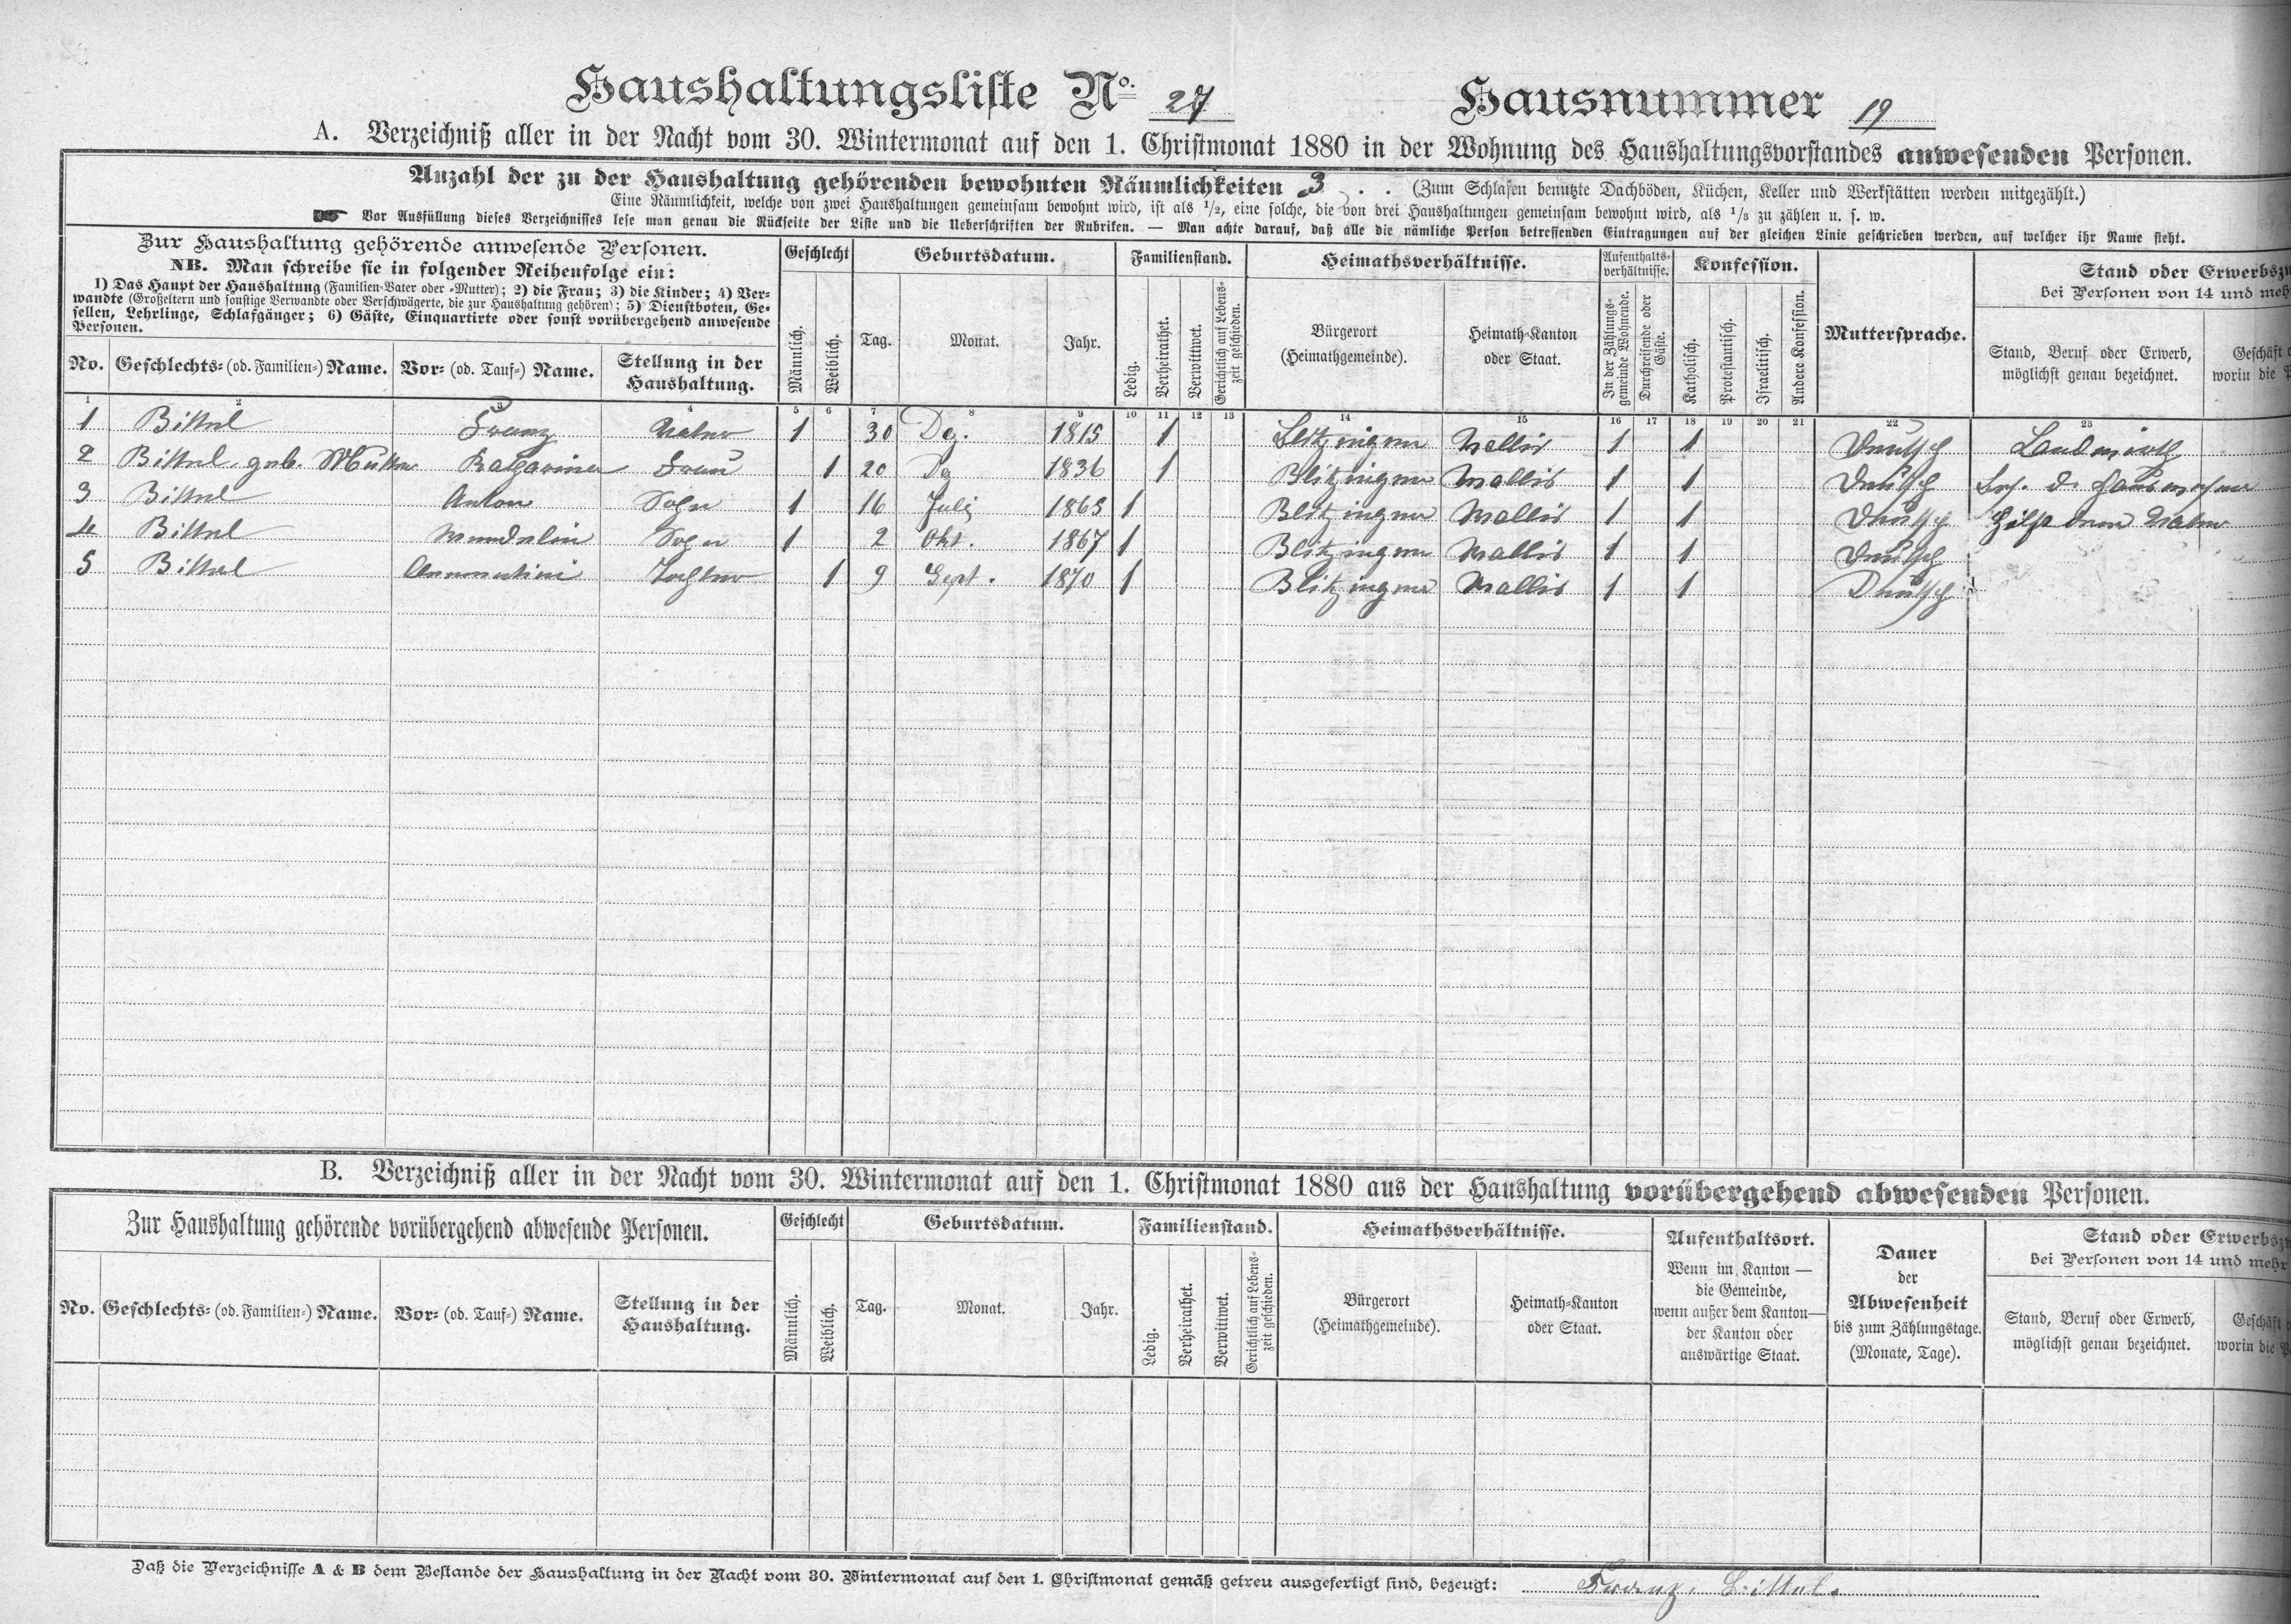 Haushaltungsliste No. 27 Hausnummer 19
A. Verzeichniß aller in der Nacht vom 30. Wintermonat auf den 1. Christmonat 1880 in der Wohnung des Haushaltungsvorstandes anwesenden Personen.
Anzahl der zu der Haushaltung gehörenden bewohnten Räumlichkeiten 3 . . (Zum Schlafen benutzte Dachböden, Küchen, Keller und Werkstätten werden mitgezählt.)
Eine Räumlichkeit, welche von zwei Haushaltungen gemeinsam bewohnt wird, ist als 1/2, eine solche, die von drei Haushaltungen gemeinsam bewohnt wird, als 1/3 zu zählen u. s. w.
Vor Ausfüllung dieses Verzeichnisses lese man genau die Rückseite der Liste und die Ueberschriften der Rubriken. — Man achte darauf, daß alle die nämliche Person betreffenden Eintragungen auf der gleichen Linie geschrieben werden, auf welcher ihr Name steht.
Zur Haushaltung gehörende anwesende Personen.
NB. Man schreibe sie in folgender Reihenfolge ein:
1) Das Haupt der Haushaltung (Familien-Vater oder -Mutter); 2) die Frau; 3) die Kinder; 4) Ver-
wandte (Großeltern und sonstige Verwandte oder Verschwägerte, die zur Haushaltung gehören); 5) Dienstboten, Ge-
sellen, Lehrlinge, Schlafgänger; 6) Gäste, Einquartirte oder sonst vorübergehend anwesende
Personen.
No. Geschlechts- (od. Familien-) Name. Vor- (od. Tauf-) Name. Stellung in der
Haushaltung.
Geschlecht
Männlich. Weiblich.
Geburtsdatum.
Tag. Monat. Jahr.
Familienstand.
Ledig. Verheirathet. Verwittwet. Gerichtlich auf Lebens-
zeit geschieden.
Heimathsverhältnisse.
Bürgerort
(Heimathgemeinde).
Heimath-Kanton
oder Staat.
Aufenthalts-
verhältnisse.
In der Zählungs-
gemeinde Wohnende.
Durchreisende oder
Gäste.
Konfession.
Katholisch. Protestantisch. Israelitisch. Andere Konfession.
Muttersprache.
Stand oder Erwerbsz
bei Personen von 14 und meh
Stand, Beruf oder Erwerb,
möglichst genau bezeichnet.
Geschäft
worin die P
1 2 3 4 5 6 7 8 9 10 11 12 13 14 15 16 17 18 19 20 21 22 23
1 Bittel Franz Vater 1 30 Dez. 1815 1 Blitzingen Wallis 1 1 Deutsch Landwirth
2 Bittel, geb. Mutter Katharina Frau 1 20 Dez 1836 1 Blitzingen Wallis 1 1 Deutsch
3 Bittel Anton Sohn 1 16 Julij 1865 1 Blitzingen Wallis 1 1 Deutsch Hilft dem Vater
4 Bittel Wendelin Sohn 1 2 Okt. 1867 1 Blitzingen Wallis 1 1 Deutsch
5 Bittel Tochter 1 9 Sept. 1870 1 Blitzingen Wallis 1 1 Deutsch
B. Verzeichniß aller in der Nacht vom 30. Wintermonat auf den 1. Christmonat 1880 aus der Haushaltung vorübergehend abwesenden Personen.
Zur Haushaltung gehörende vorübergehend abwesende Personen.
No. Geschlechts- (od. Familien-) Name. Vor- (od. Tauf-) Name. Stellung in der
Haushaltung.
Geschlecht
Männlich. Weiblich.
Geburtsdatum.
Tag. Monat. Jahr.
Familienstand.
Ledig. Verheirathet. Verwittwet. Gerichtlich auf Lebens-
zeit geschieden.
Heimathsverhältnisse.
Bürgerort
(Heimathgemeinde).
Heimath-Kanton
oder Staat.
Aufenthaltsort.
Wenn im Kanton —
die Gemeinde,
wenn außer dem Kanton—
der Kanton oder
auswärtige Staat.
Dauer
der
Abwesenheit
bis zum Zählungstage.
(Monate, Tage).
Stand oder Erwerbsz
bei Personen von 14 und mehr
Stand, Beruf oder Erwerb,
möglichst genau bezeichnet.
Geschäft
worin die P
Daß die Verzeichnisse A & B dem Bestande der Haushaltung in der Nacht vom 30. Wintermonat auf den 1. Christmonat gemäß getreu ausgefertigt sind, bezeugt: Franz Bittel.